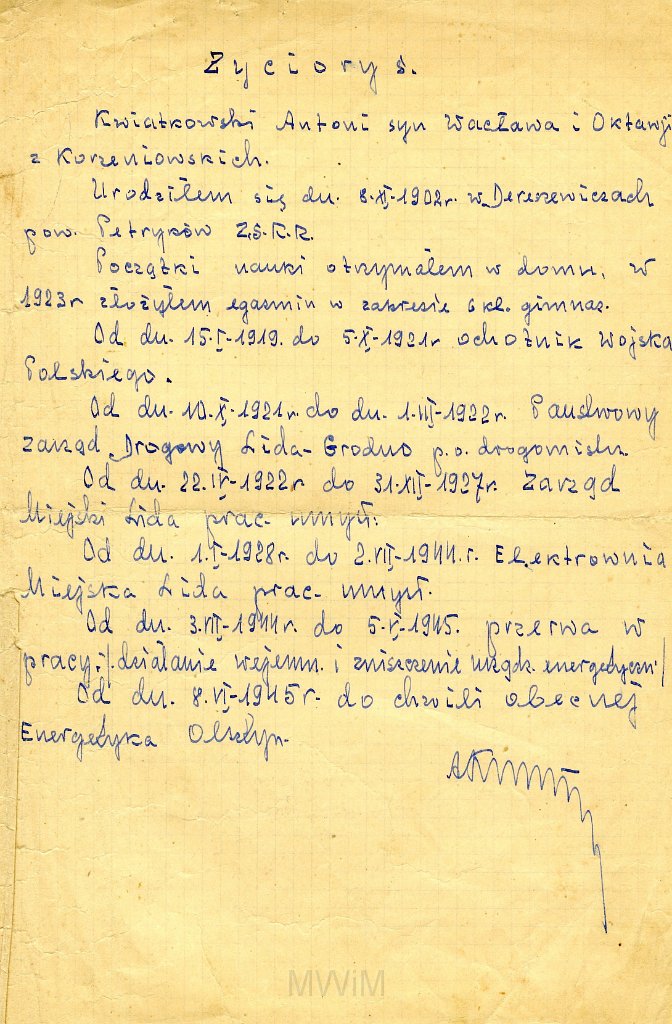 Życiorys.
Kwiatkowski Antoni syn Wacława i Oktawji
z Korzeniowskich.
Urodziłem się dn. 8.XI-1902r. w Dereszewiczach
pow. Petryków Z.S.R.R.
Początki nauki otrzymałem w domu, w
1923r złożyłem egzamin w zakresie 6 kl. gimnaz.
Od dn. 15.I-1919. do 5.X-1921r ochotnik Wojska
Polskiego.
Od dn. 10.X-1921r. do dn. 1.III-1922r. Państwowy
Zarząd Drogowy Lida-Grodno p.o. drogomistrz.
Od dn. 22.IV-1922r do 31.XII-1927r. Zarząd
Miejski Lida prac. umysł.
Od dn. 1.I-1928r. do 2.VII-1944.r. Elektrownia
Miejska Lida prac. umysł.
Od dn. 3.VII-1944r. do 5.VI-1945. przerwa w
pracy,-/działanie wojenn. i zniszczenie urządz. energetyczn./
Od dn. 8.VI-1945r. do chwili obecnej
Energetyka Olsztyn.
MWiM